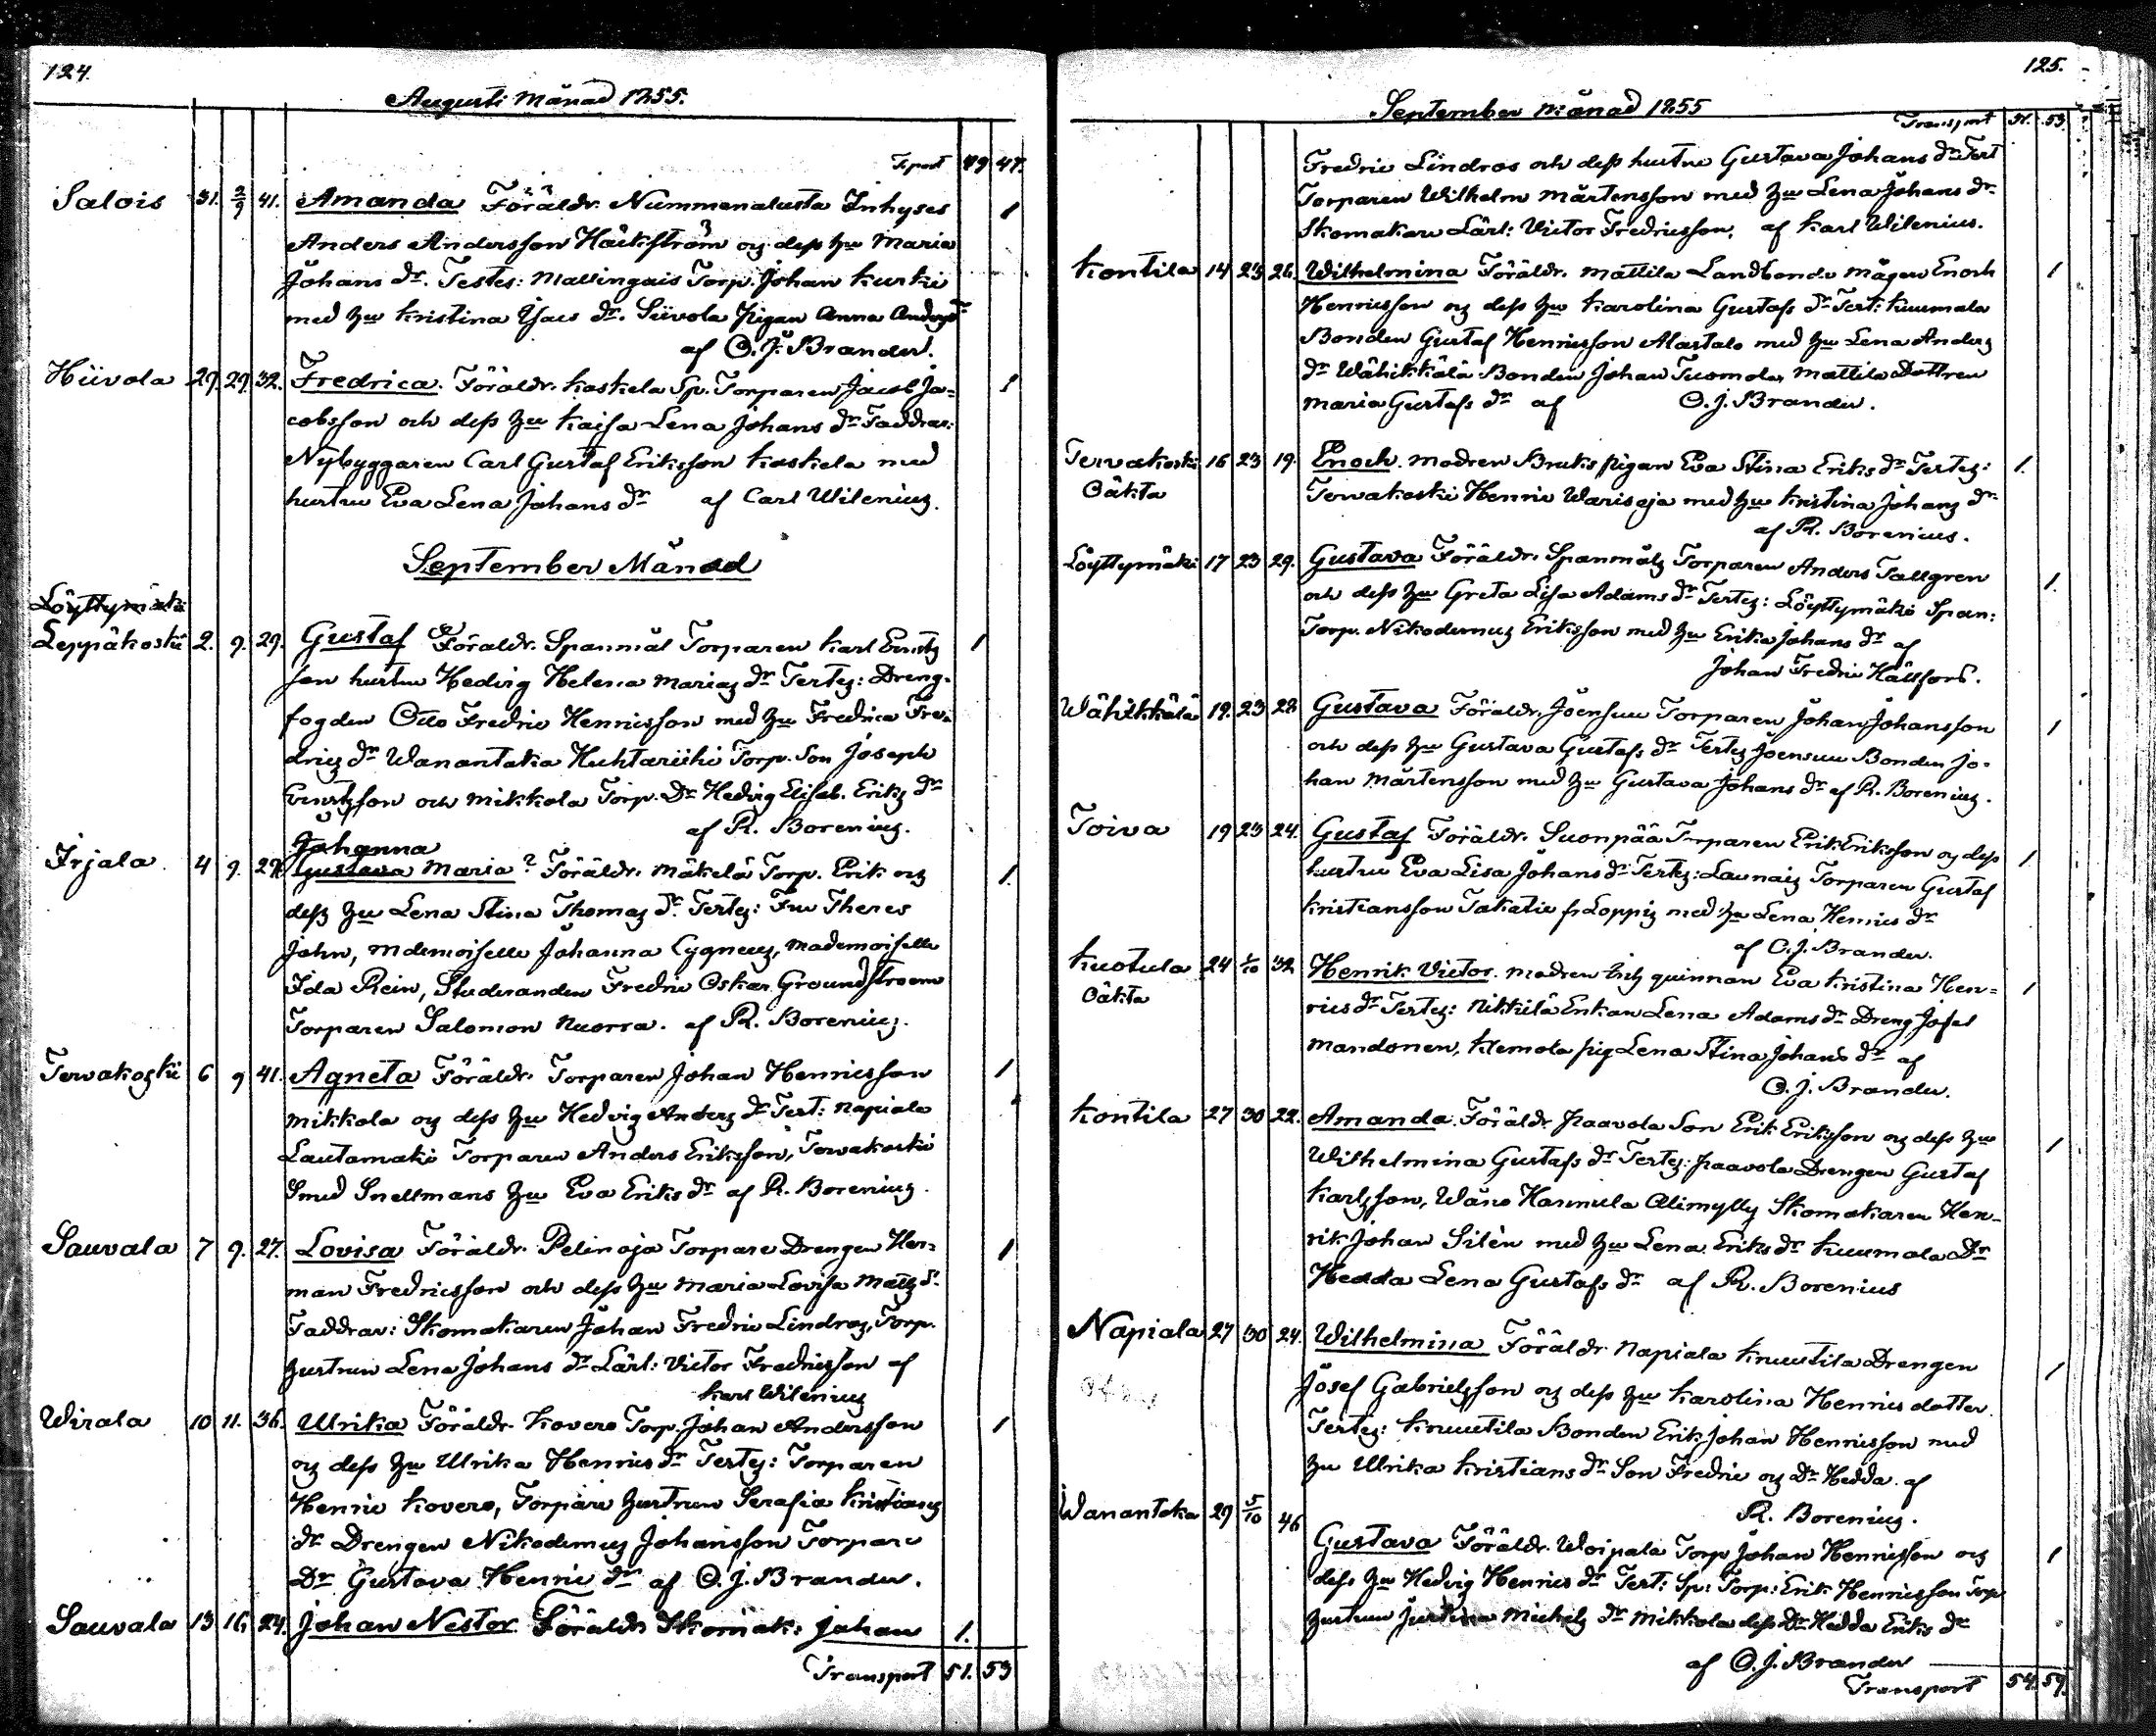 124.
Augusti Månad 1855.
Tsport 49 47.
Salois 31. 2/9 41. Amanda Föräldr. Nummenalusta Inhyses 1
Anders Andersson Häckström og dess hu Maria
Johans dr. Testes: Mallingais Torp. Johan Kurki
med hu Kristina Isacs dr. Siivola Pigan Anna Anders dr
af C. J. Brander.
Hiivola 29. 29. 32. Fredrica. Föräldr. Kaskela Sp. Torparen Jacob Ja= 1
cobsson och dess hu Kajsa Lena Johans dr Faddrar:
Nybyggaren Carl Gustaf Eriksson Kaskela med
hustru Eva Lena Johans dr af Carl Wilenius.
September Månad
Löyttymäki
Leppäkoski 2. 9. 29. Gustaf Föräldr. Spanmål Torparen Karl Ernsts 1
son hustru Hedvig Helena Marias dr Testes: Dreng-
fogden Otto Fredric Henricsson med hu Fredrica Fre-
drics dr Wanantaka Huhtariihi Torp. Son Joseph
Ernstsson och Mikkola Torp. Dr Hedvig Elisab. Eriks dr
af R. Borenius.
Johanna
Irjala 4 9. 27. Gustava Maria? Föräldr. Mäkelä Torp. Erik og 1.
dess hu Lena Stina Thomas dr. Testes: Fru Theres
John, Mdemoiselle Johanna Cygneus, Mademoiselle
Ida Rein, Studeranden Fredric Oskar Groundstroem
Torparen Salomon Nuorra. af R. Borenius.
Terwakoski 6 9 41. Agneta Föräldr. Torparen Johan Henricsson 1
Mikkola og dess hu Hedvig Anders dr Test: Napiala
Lautamäki Torparen Anders Eriksson, Terwakoski
Smed Snellmans hu Eva Eriks dr af R. Borenius.
Sauvala 7 9. 27. Lovisa Föräldr. Pelinoja Torpare Drengen Her= 1
man Fredricsson och dess hu Maria Lovisa Matts dr.
Faddrar: Skomakaren Johan Fredric Lindros, Torp.
hustrun Lena Johans dr Lärl: Victor Fredricsson af
Karl Wilenius
Wirala 10 11. 36. Ulrika Föräldr. Kovero Torp. Johan Andersson 1
og dess hu Ulrika Henrics dr Testes: Torparen
Henric Kovero, Torpare hustrun Serafia Kristians
dr Drengen Nikodemus Johansson Torpare
Dr Gustava Henric dr af C. J. Brander.
Sauvala 13 16 24. Johan Nestor Föräldr. Skomak: Johan 1.
Transport 51. 53
125.
September Månad 1855
Transport 51. 53.
Fredric Lindros och dess hustru Gustava Johans dr Test
Torparen Wilhelm Mårtensson med hu Lena Johans dr.
Skomakare Lärl: Victor Fredricsson, af Karl Wilenius.
Kontila 14 23 26. Wilhelmina Föräldr. Mattila Landbonde Mågen Enoch 1
Henricsson og dess hu Karolina Gustafs dr Test: Kuumala
Bonden Gustaf Henricsson Alastalo med hu Lena Anders
dr Wähikkälä Bonden Johan Tuomola, Mattila Dottren
Maria Gustafs dr af C. J. Brander.
Tervakoski 16 23 19. Enoch. Modren Bruks pigan Eva Stina Eriks dr Testes: 1.
Oäkta Terwakoski Henric Warisoja med hu Kristina Johans dr
af R. Borenius.
Löyttymäki 17 23 29. Gustava Föräldr. Spanmåls Torparen Anders Tallgren 1.
och dess hu Greta Lisa Adams dr Testes: Löyttymäki Span:
Torp. Nikodemus Eriksson med hu Erika Johans dr af
Johan Fredric Hällfors.
Wähikkälä 19. 23 28 Gustava Föräldr. Joensuu Torparen Johan Johansson 1
och dess hu Gustava Gustafs dr Testes Joensuu Bonden Jo-
han Mårtensson med hu Gustava Johans dr af R. Borenius.
Toiva 19 23 24. Gustaf Föräldr. Suonpää Torparen Erik Eriksson og dess 1.
hustru Eva Lisa Johans dr Testes: Launais Torparen Gustaf
Kristiansson Takatie fr Loppis med hu Lena Henrics dr
af C. J. Brander.
Kuotula 24 1/10 32 Henrik Victor. Modren qvinnan Eva Kristina Hen= 1
Oäkta rics dr Testes: Nikkilä Enkan Lena Adams dr Dreng Josef
Mandonen, Klemola pig Lena Stina Johans dr af
C. J. Brander.
Kontila 27 30 22. Amanda. Föräldr. Paavola Son Erik Eriksson og dess hu 1
Wilhelmina Gustafs dr Testes: Paavola Drengen Gustaf
Karlsson, Wånå Harmula Alimylly Skomakaren Hen-
rik Johan Silén med hu Lena Eriks dr Kuumala Dr
Hedda Lena Gustafs dr af R. Borenius
Napiala 27 30 24. Wilhelmina Föräldr. Napiala Knuutila Drengen 1
Josef Gabrielsson og dess hu Karolina Henrics dotter.
Testes: Knuutila Bonden Erik Johan Henricsson med
hu Ulrika Kristians dr Son Fredric og Dr Hedda. af
R. Borenius.
Wanantaka 29 5/10 46 Gustava Föräldr. Woipala Torp Johan Henricsson og 1
dess hu Hedvig Henrics dr Test: Sp: Torp: Erik Henricsson Torp
hustrun Justina Michels dr Mikkola dess Dr Hedda Eriks dr
af C. J. Brander
Transport 54. 59.